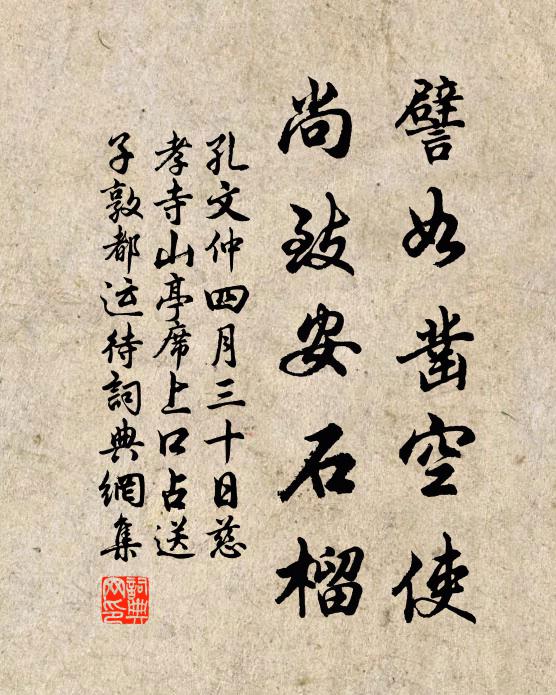 譬如鑿空使
尚致安石榴
孔文仲四月三十日慈
孝寺山亭席上口占送
子敦都运待詞典網集
詞典網印